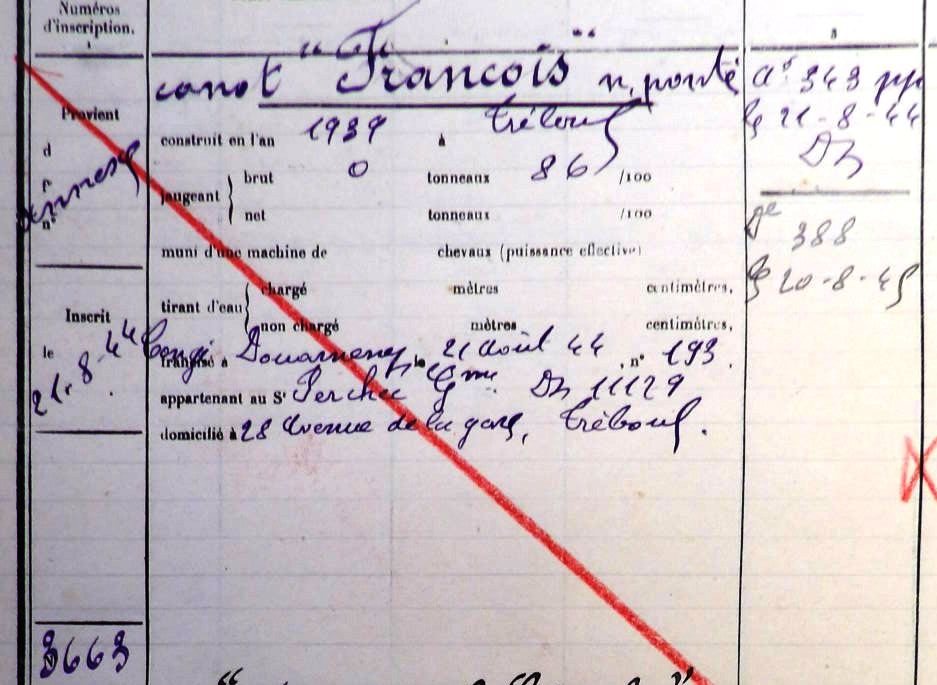 Numéros
d'inscription.
canot "Francois" n. ponté
Provient
d
n°
Inscrit
le
21.8.44
3663
construit en l'an 1937 à Tréboul
jaugeant brut 0 tonneaux 86 /100
net tonneaux /100
muni d'une machine de chevaux (puissance effective)
tirant d'eau chargé mètres centimètres,
non chargé mètres centimètres,
francisé à Congé Douarnenez, le 21 août 44, n° 193.
appartenant au Sr Perchec Gme Dz 11129
domicilié à 28 Avenue de la gare, Tréboul.
343
le 21-8-44
Dz
388
le 20-8-45